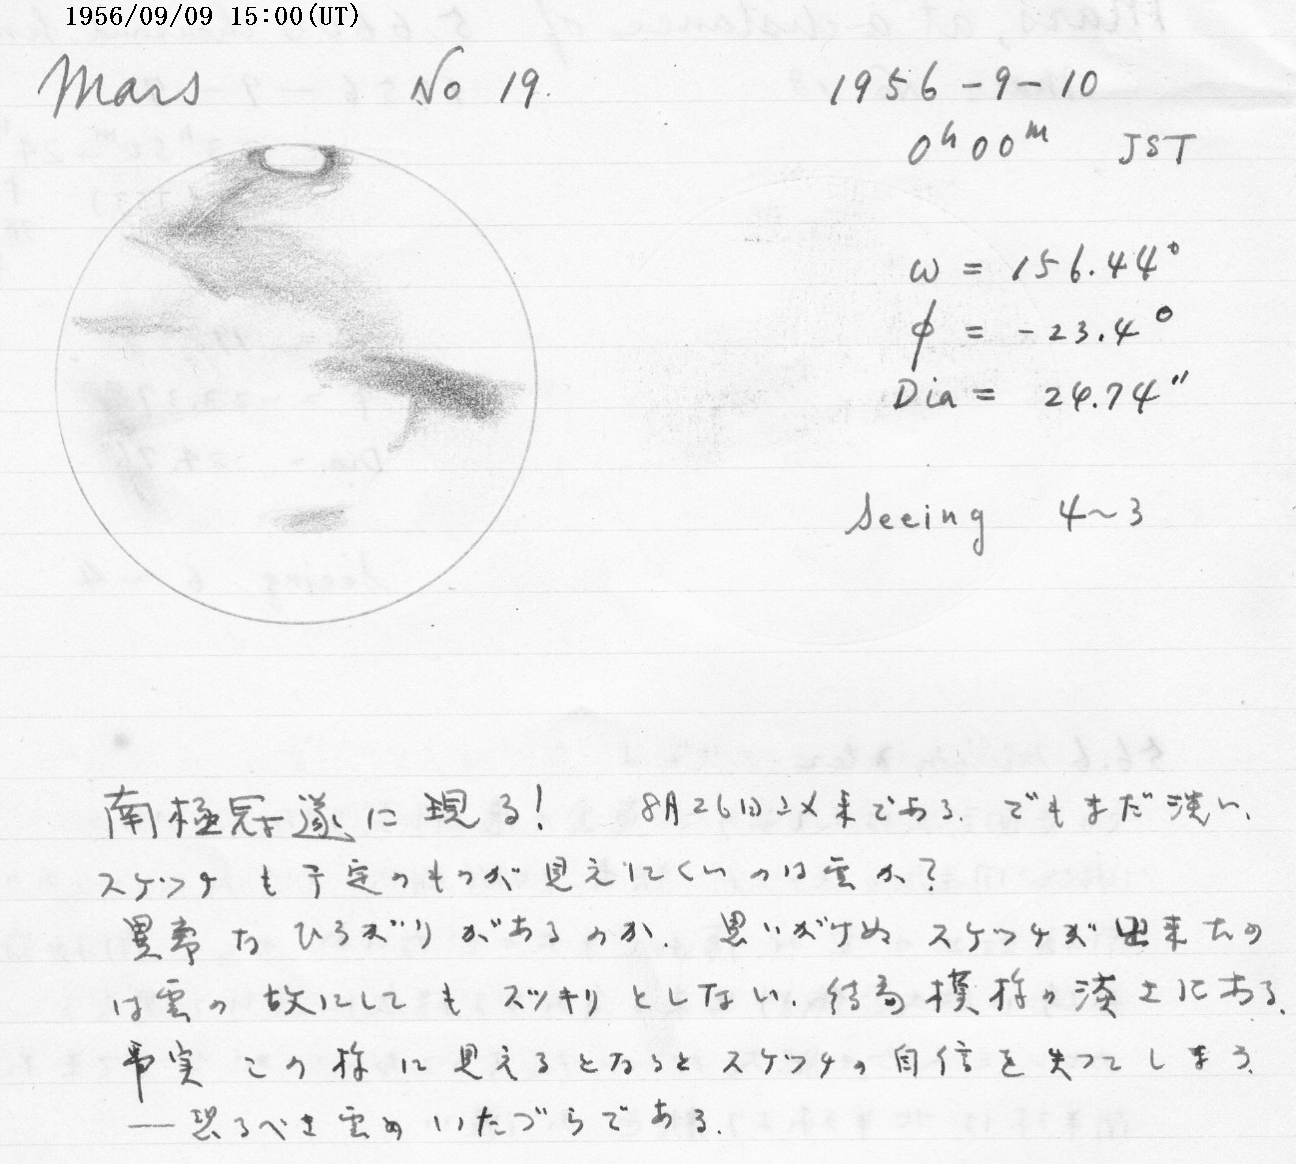 1956/09/09 15:00(UT)
Mars No 19.
1956-9-10
0h00m JST
ω = 156.44°
φ = -23.4°
Dia = 24.74"
Seeing 4~3
南極冠遂に現る! 8月26日以来である。でもまだ淡い、
スケッチも予定のものが見えにくいのは雲か?
異常なひろがりがあるのか。思いがけぬスケッチが出来たの
は雲の故にしてもスッキリとしない。結局模様の淡さにある。
事実この様に見えるとなるとスケッチの自信を失ってしまう。
──恐るべき雲のいたづらである。